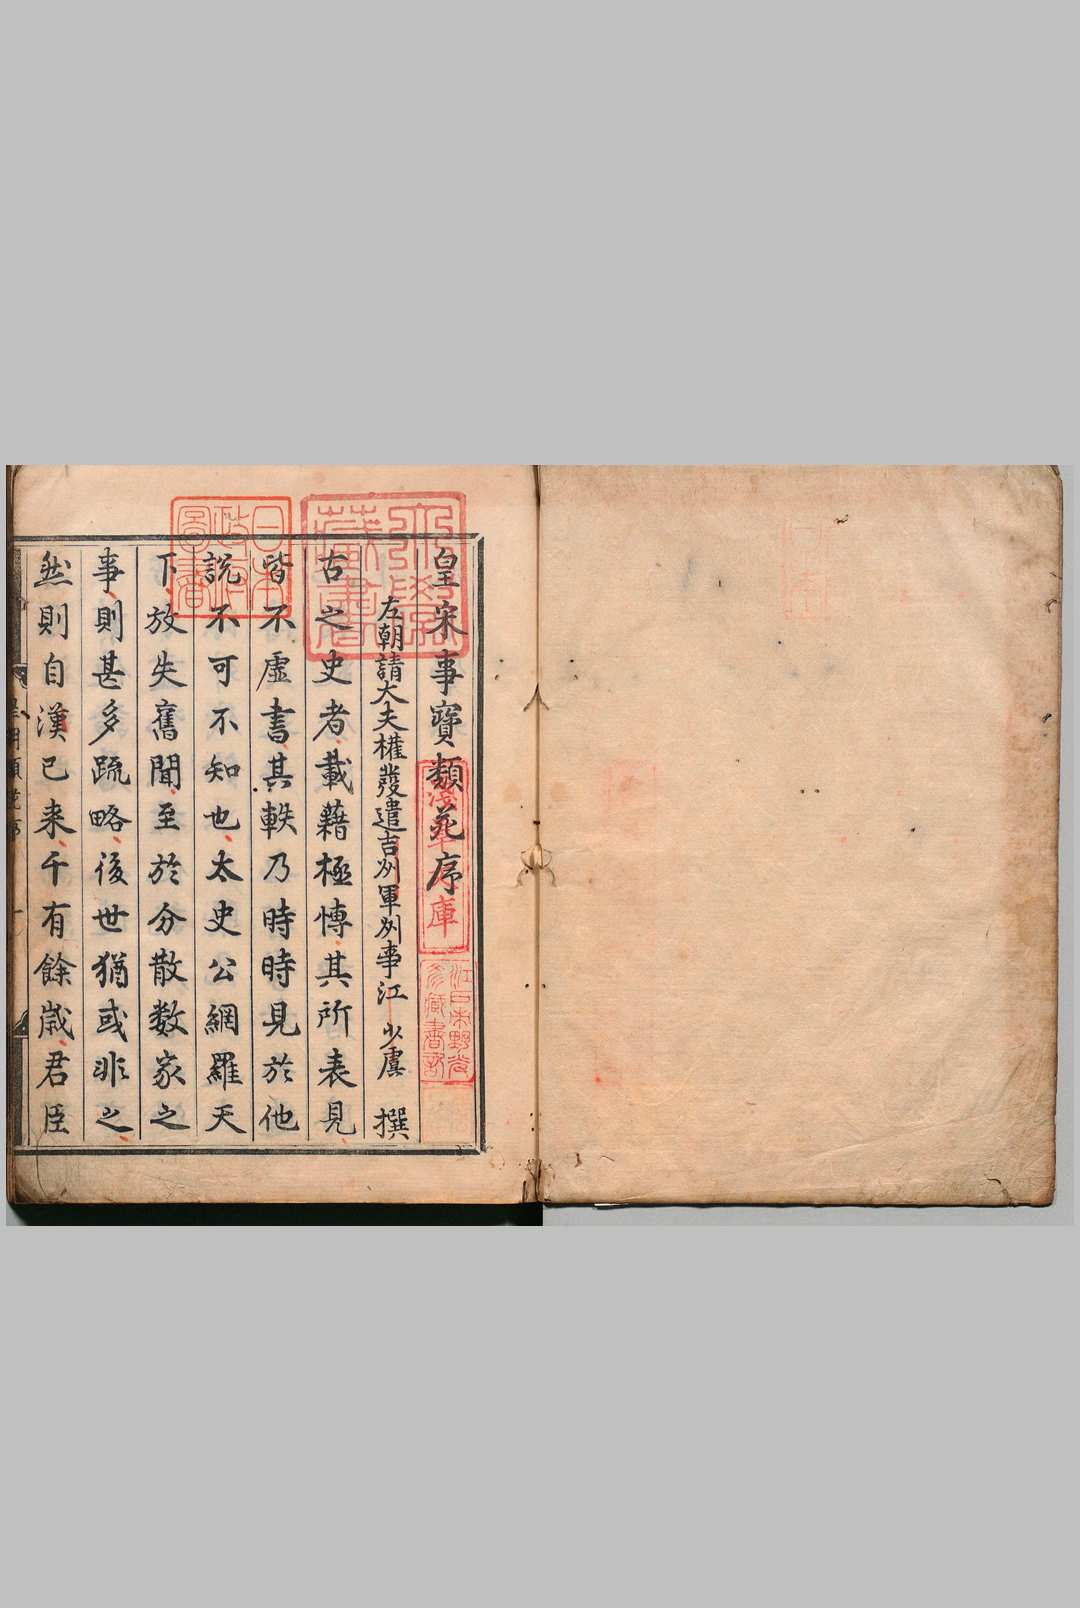 皇宋事寶類苑序
左朝請大夫權發遣吉州軍州事江少虞 撰
古之史者載藉極博其所表見
皆不虛書其軼乃時時見於他
說不可不知也太史公網羅天
下放失舊聞至於分散數家之
事則甚多疏略後世猶或非之
然則自漢已来千有餘歲君臣
日本
政府
圖書
淺草文庫
江戸市野光
彦藏書記